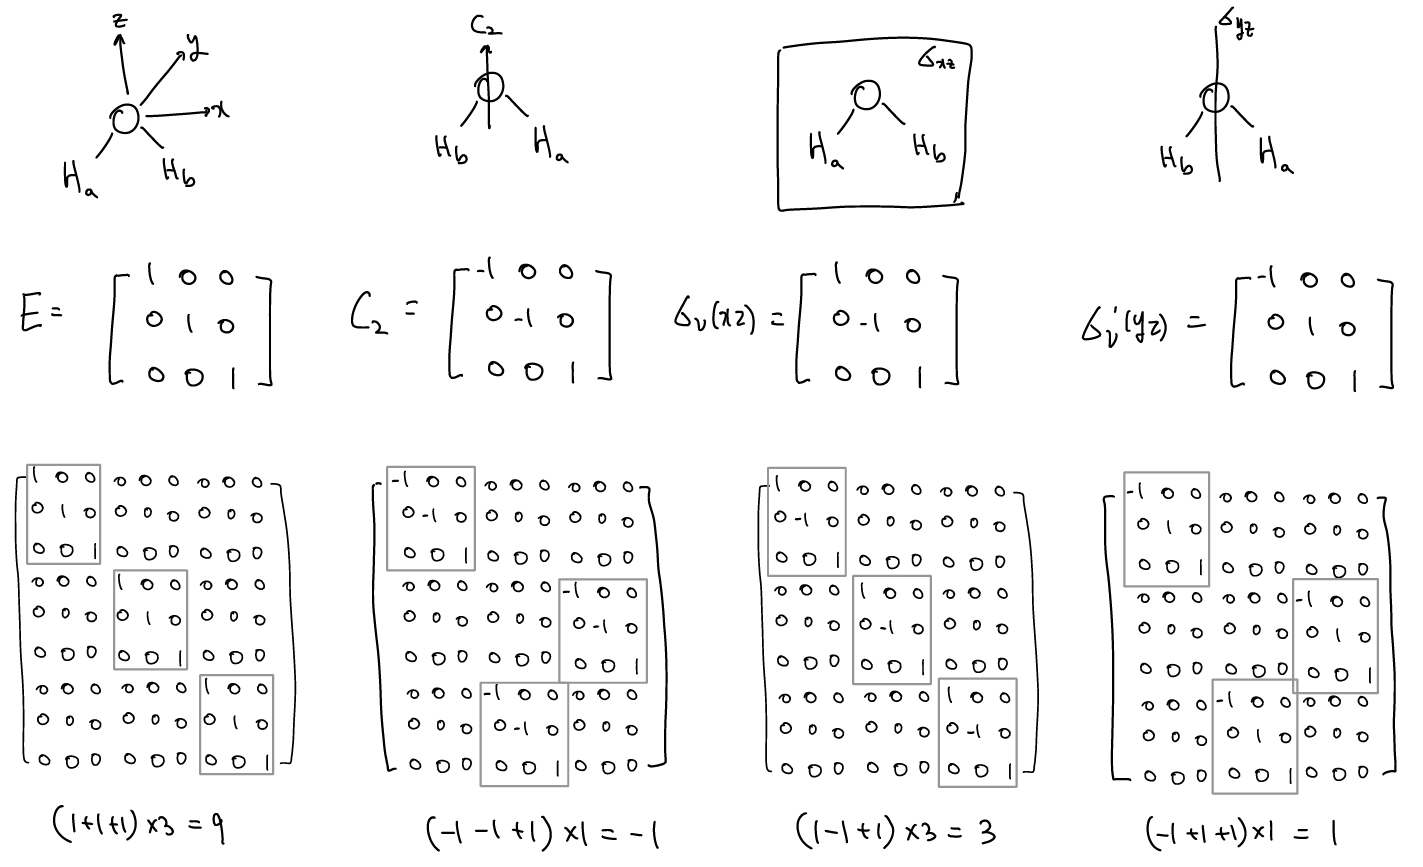 z
y
x
Hₐ
H_b
C₂
H_b
Hₐ
σxz
Hₐ
H_b
σyz
H_b
Hₐ
E = [ 1 0 0
0 1 0
0 0 1 ]
C₂ = [ -1 0 0
0 -1 0
0 0 1 ]
σv(xz) = [ 1 0 0
0 -1 0
0 0 1 ]
σv'(yz) = [ -1 0 0
0 1 0
0 0 1 ]
1 0 0 0 0 0 0 0 0
0 1 0 0 0 0 0 0 0
0 0 1 0 0 0 0 0 0
0 0 0 1 0 0 0 0 0
0 0 0 0 1 0 0 0 0
0 0 0 0 0 1 0 0 0
0 0 0 0 0 0 1 0 0
0 0 0 0 0 0 0 1 0
0 0 0 0 0 0 0 0 1
(1+1+1) ×3 = 9
-1 0 0 0 0 0 0 0 0
0 -1 0 0 0 0 0 0 0
0 0 1 0 0 0 0 0 0
0 0 0 0 0 0 -1 0 0
0 0 0 0 0 0 0 -1 0
0 0 0 0 0 0 0 0 1
0 0 0 -1 0 0 0 0 0
0 0 0 0 -1 0 0 0 0
0 0 0 0 0 1 0 0 0
(-1 -1 +1) ×1 = -1
1 0 0 0 0 0 0 0 0
0 -1 0 0 0 0 0 0 0
0 0 1 0 0 0 0 0 0
0 0 0 1 0 0 0 0 0
0 0 0 0 -1 0 0 0 0
0 0 0 0 0 1 0 0 0
0 0 0 0 0 0 1 0 0
0 0 0 0 0 0 0 -1 0
0 0 0 0 0 0 0 0 1
(1-1+1) ×3 = 3
-1 0 0 0 0 0 0 0 0
0 1 0 0 0 0 0 0 0
0 0 1 0 0 0 0 0 0
0 0 0 0 0 0 -1 0 0
0 0 0 0 0 0 0 1 0
0 0 0 0 0 0 0 0 1
0 0 0 -1 0 0 0 0 0
0 0 0 0 1 0 0 0 0
0 0 0 0 0 1 0 0 0
(-1 +1 +1)×1 = 1